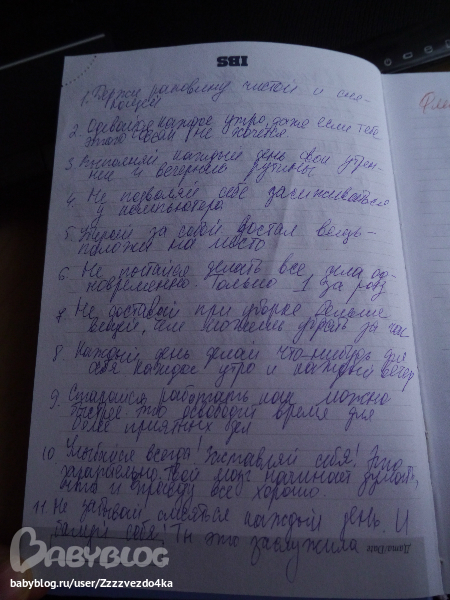 IBS
1. Держи раковину чистой и сия-
ющей
2. Одевайся каждое утро, даже если тебе
этого совсем не хочется
3. Выполняй каждый день свои утрен-
ние и вечерние рутины
4. Не позволяй себе засиживаться
у компьютера
5. Убирай за собой достал вещь-
положи на место
6. Не пытайся делать все дела од-
новременно. Только 1 за раз
7. Не доставай при уборке больше
вещей, чем можешь убрать за час
8. Каждый день делай что-нибудь для
себя каждое утро и каждый вечер
9. Старайся работать как можно
быстрее это освободит время для
более приятных дел
10. Улыбайся всегда! Заставляй себя! Это
заразительно. Твой мозг начинает думать,
что и правду все хорошо.
11. Не забывай смеяться каждый день. И
балуй себя. Ты это заслужила
Дата/Date
BABYBLOG
babyblog.ru/user/Zzzzvezdo4ka